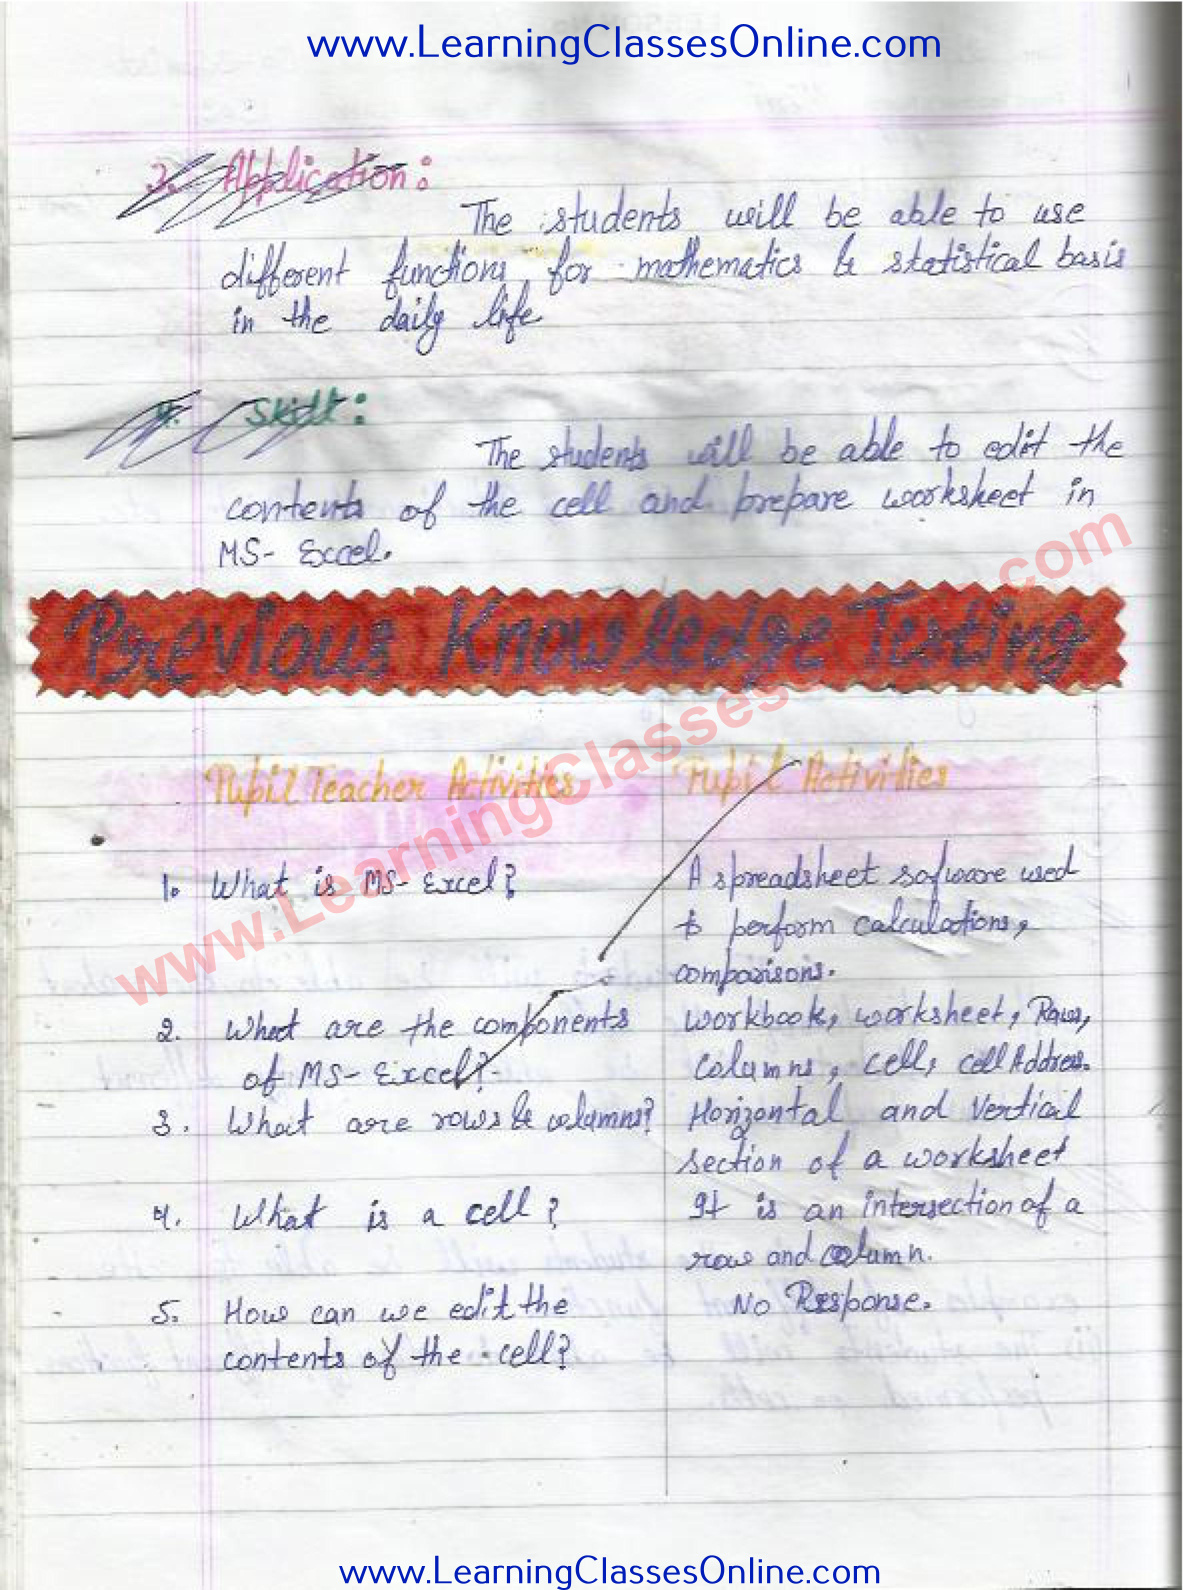 www.LearningClassesOnline.com
3. Application:
The students will be able to use
different functions for mathematics & statistical basis
in the daily life
4. Skill:
The students will be able to edit the
contents of the cell and prepare worksheet in
MS- Excel.
Previous Knowledge Testing
www.LearningClasses .com
Pupil Teacher Activities Pupil Activities
1. What is MS- Excel? A spreadsheet sofware used
to perform calculations,
comparisons.
2. What are the components workbook, worksheet, Rows,
of MS- Excel? columns, cell, cell Address.
3. What are rows & columns? Horizontal and Vertical
section of a worksheet
4. What is a cell? It is an intersection of a
row and column.
5. How can we edit the No Response.
contents of the cell?
www.LearningClassesOnline.com